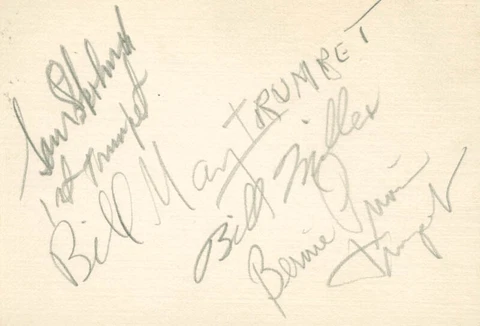 1st Trumpet
Bill May TRUMPET
Bill Miller
Bernie Privin
Trumpet